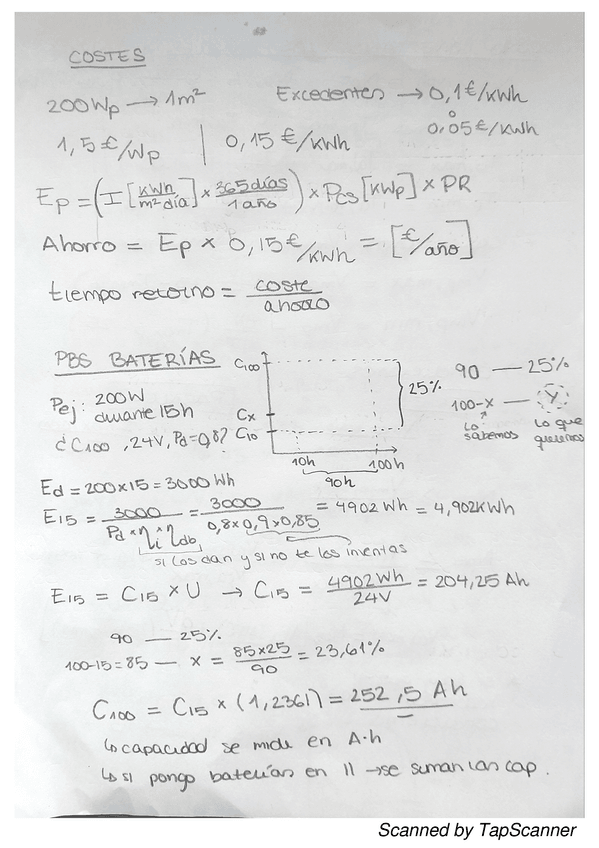 COSTES
200Wp → 1m²
Excedentes → 0,1€/kWh
o
0,05€/kWh
1,5€/Wp | 0,15€/kWh
Ep = (I [kWh/m²día] × 365días/1año) × PCGS [kWp] × PR
Ahorro = Ep × 0,15€/kWh = [€/año]
tiempo retorno = coste/ahorro
PBS BATERÍAS
Pej: 200W
durante 15h
¿C100, 24V, Pd=0,8?
C100
Cx
C10
25%
10h 100h
90h
90 — 25%
100-x — Y
Lo sabemos
Lo que queremos
Ed = 200×15 = 3000 Wh
E15 = 3000/(Pd × ηi × ηdb) = 3000/(0,8×0,9×0,85) = 4902 Wh = 4,902kWh
si los dan y si no te los inventas
E15 = C15 × U → C15 = 4902Wh/24V = 204,25 Ah
90 — 25%
100-15=85 — x = 85×25/90 = 23,61%
C100 = C15 × (1,2361) = 252,5 Ah
↳ capacidad se mide en A·h
↳ si pongo baterías en || → se suman las cap.
Scanned by TapScanner